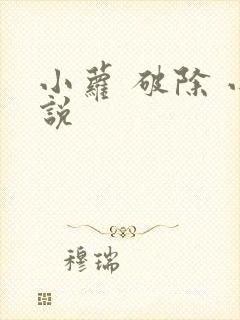 小蘿 破除 小
說
穆瑞